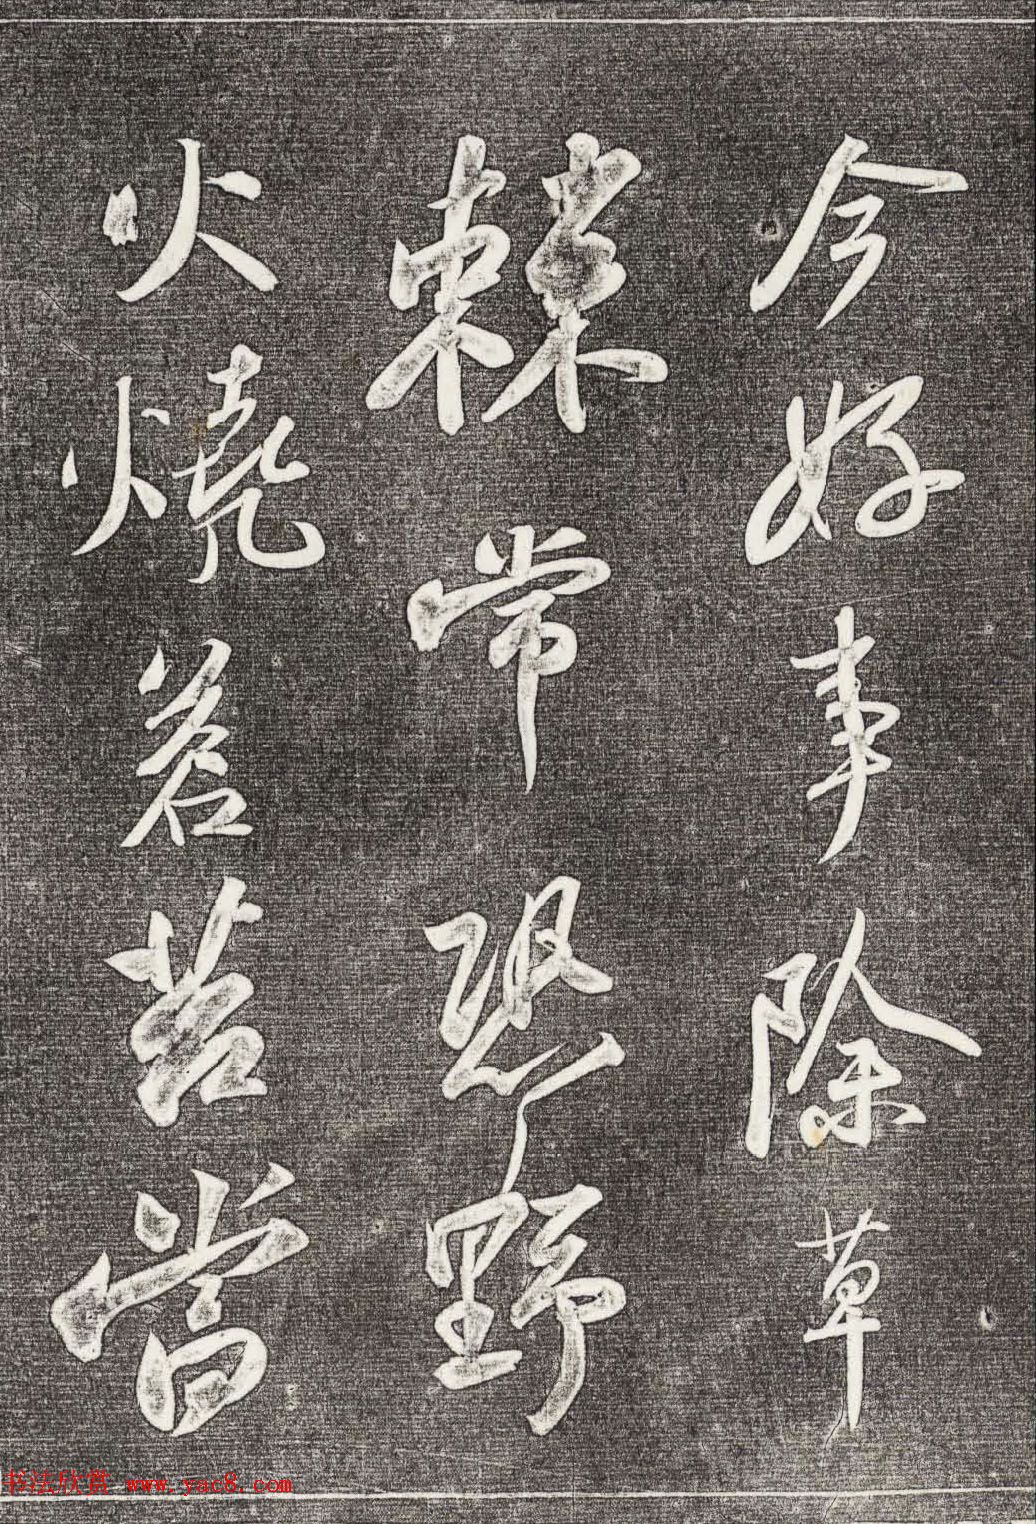 今好事除草
棘常恐野
火燒君若當
书法欣赏 www.yac8.com